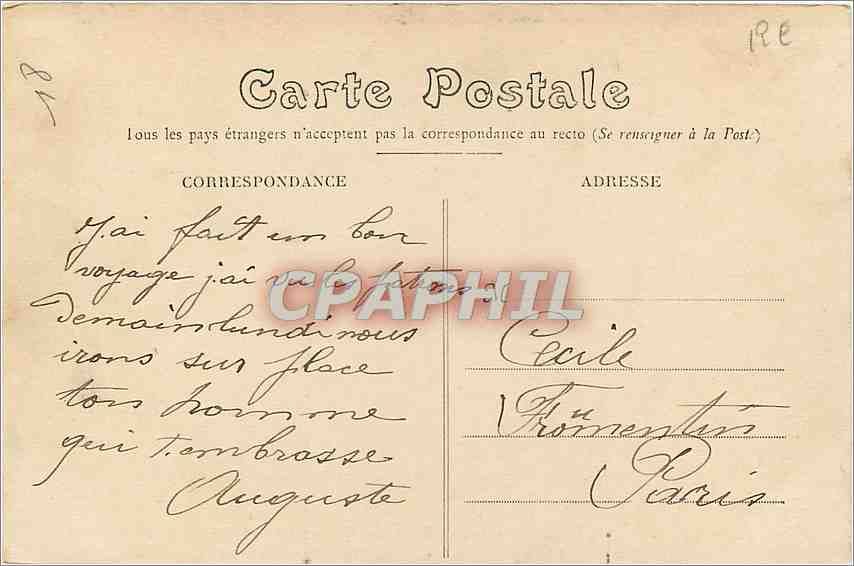 RC
18
Carte Postale
Tous les pays étrangers n'acceptent pas la correspondance au recto (Se renseigner à la Poste)
CORRESPONDANCE
J'ai fait un bon
voyage j'ai vu les
Demain lundi nous
irons sur place
ton homme
qui t'embrasse
Auguste
ADRESSE
Cecile
Fromentin
Paris
CPAPHIL